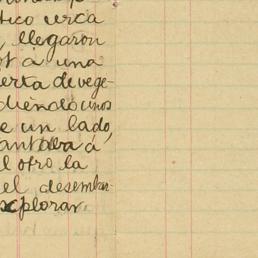 tico cerca
, llegaron
á una
erta de vege-
diendo unos
e un lado,
antaba á
l otro la
el desembar-
explorar